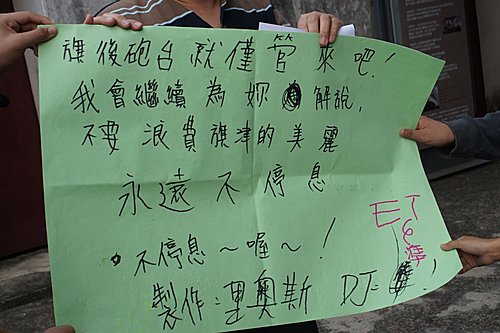 旗後砲台就僅管來吧!
我會繼續為妳解說,
不要浪費旗津的美麗
永遠不停息
。不停息～喔～!
ET
&
製作:里奧斯 DJ: